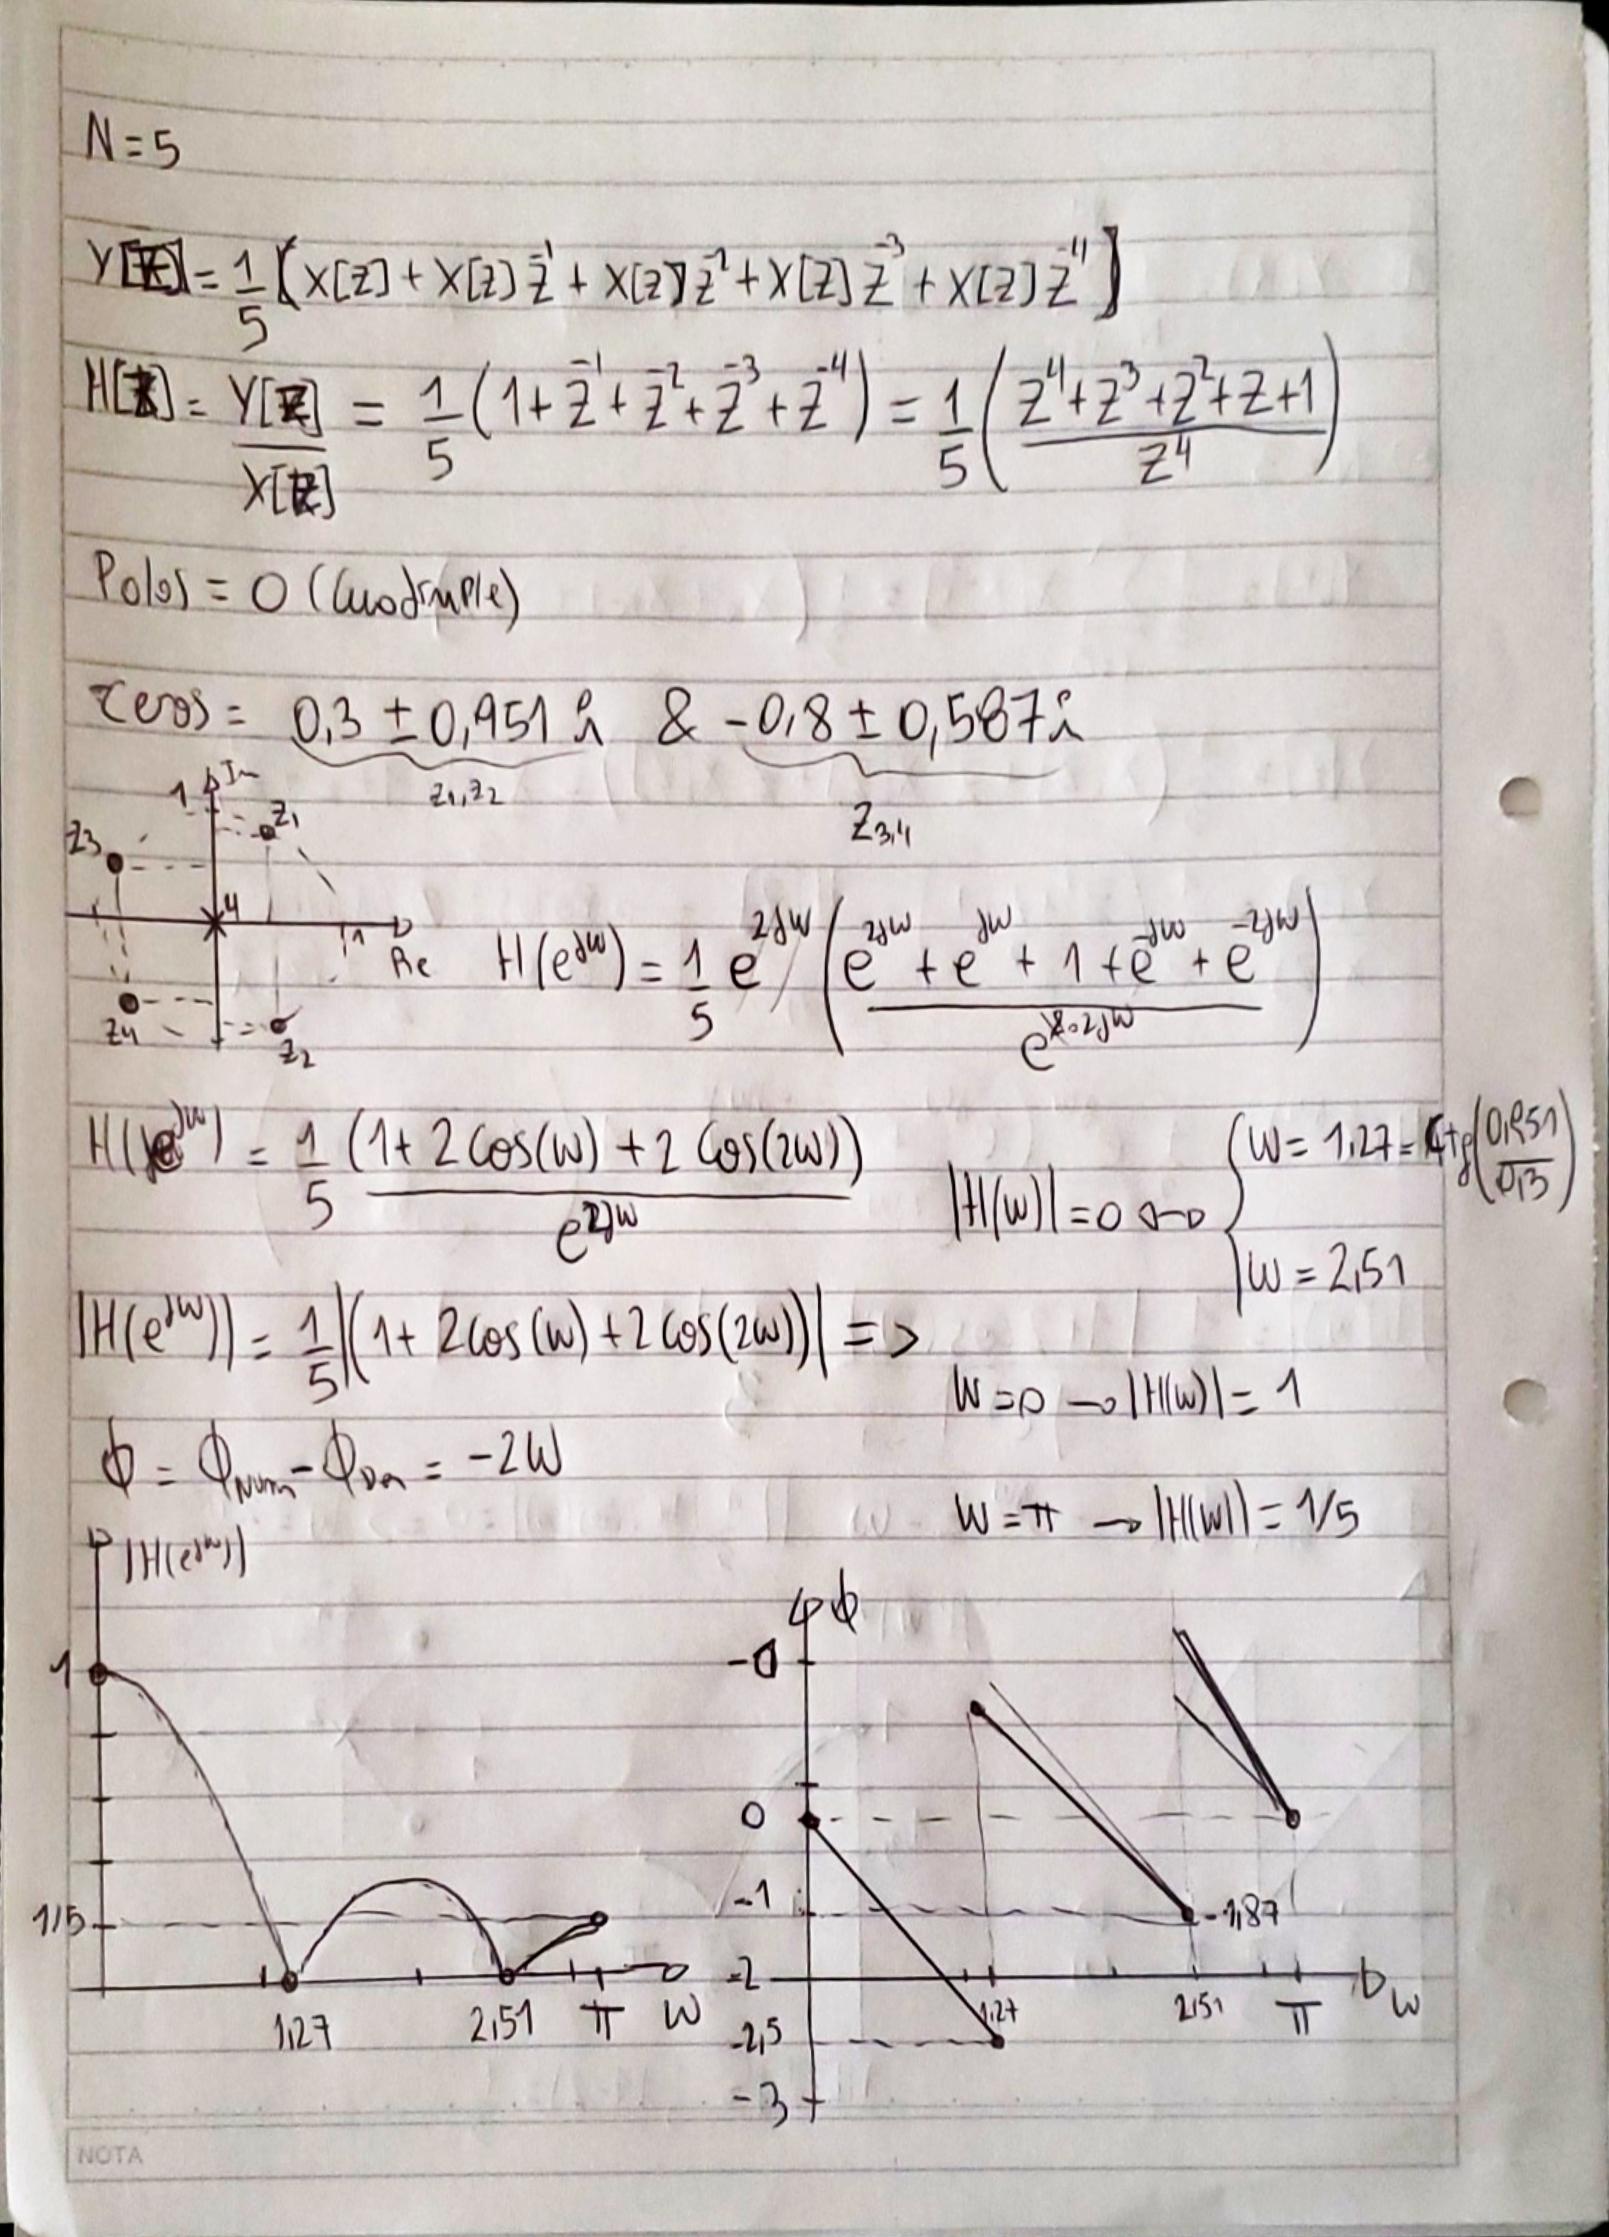 N = 5
Y[z] = 1/5 [X[z] + X[z] z^-1 + X[z] z^-2 + X[z] z^-3 + X[z] z^-4]
H[z] = Y[z]/X[z] = 1/5 (1 + z^-1 + z^-2 + z^-3 + z^-4) = 1/5 ((z^4 + z^3 + z^2 + z + 1)/z^4)
Polos = 0 (Cuadruple)
Ceros = 0,3 ± 0,951 i & -0,8 ± 0,587 i
z1, z2
z3,4
1 Im
z1
z3
4
1
Re
z4
z2
H(e^jw) = 1/5 e^2jw ((e^2jw + e^jw + 1 + e^-jw + e^-2jw)/e^2·2jw)
H(e^jw) = 1/5 (1 + 2 cos(w) + 2 cos(2w))/e^2jw
|H(w)| = 0 ↔ { w = 1,27 = tg(0,951/0,3)
w = 2,51
|H(e^jw)| = 1/5 |(1 + 2 cos(w) + 2 cos(2w))| =>
w = 0 → |H(w)| = 1
ϕ = ϕNum - ϕDen = -2w
w = π → |H(w)| = 1/5
|H(e^jw)|
1
1/5
1,27 2,51 π w
ϕ
-0
0
-1
-1,87
-2
1,27 2,51 π w
-2,5
-3
NOTA